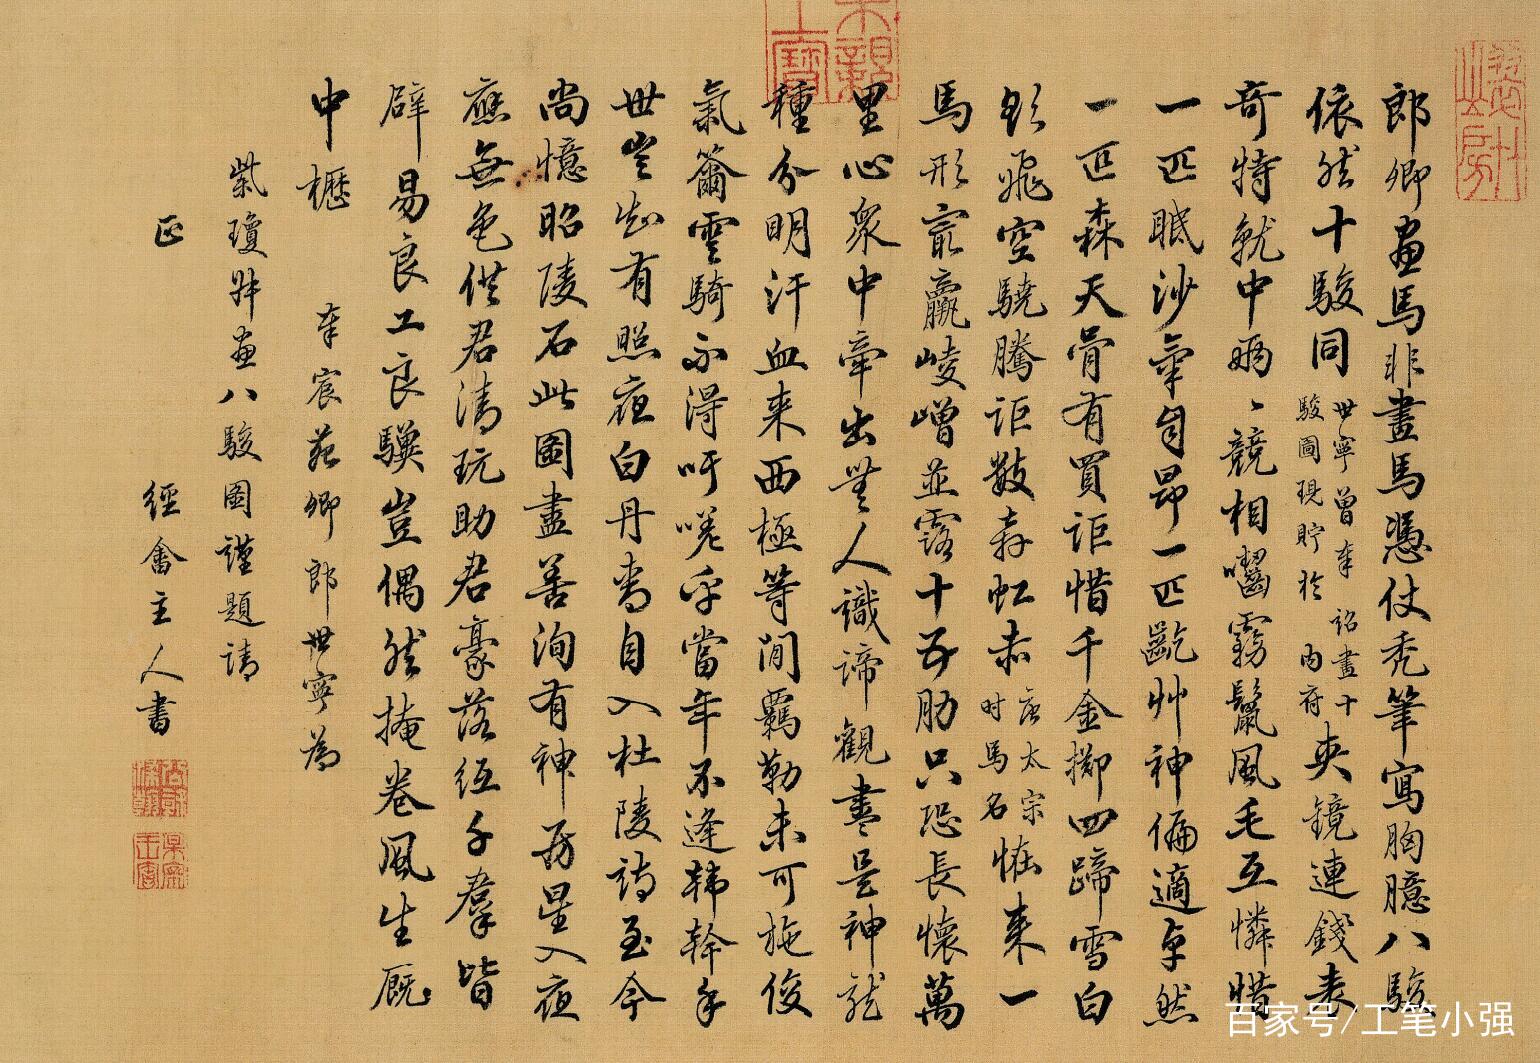 郎卿畫馬非畫馬憑仗禿筆寫胸臆八駿
依然十駿同世寧曾奉詔畫十駿圖現貯於內府夾鏡連錢表
奇特就中兩兩競相囓霧鬣風毛互憐惜
一匹眂沙氣自昂一匹齕艸神偏適卓然
一匹森天骨有買詎惜千金擲四蹄雪白
欲飛空驍騰詎數奔虹赤唐太宗時馬名恠來一
馬形最羸崚嶒並露十五肋只恐長懷萬
里心眾中牽出無人識諦觀盡是神龍
種分明汗血來西極等閒羈勒未可施俊
氣籋雲騎不得吁嗟乎當年不逢韓幹手
世豈知有照夜白丹青自入杜陵詩至今
尚憶昭陵石此圖盡善洵有神房星入夜
應無色供君清玩助君豪落紙千羣皆
辟易良工良驥豈偶然掩卷風生厩
中櫪 奉宸苑卿郎世寧為
紫瓊畫八駿圖謹題請
正 經畬主人書
百家号/工笔小强